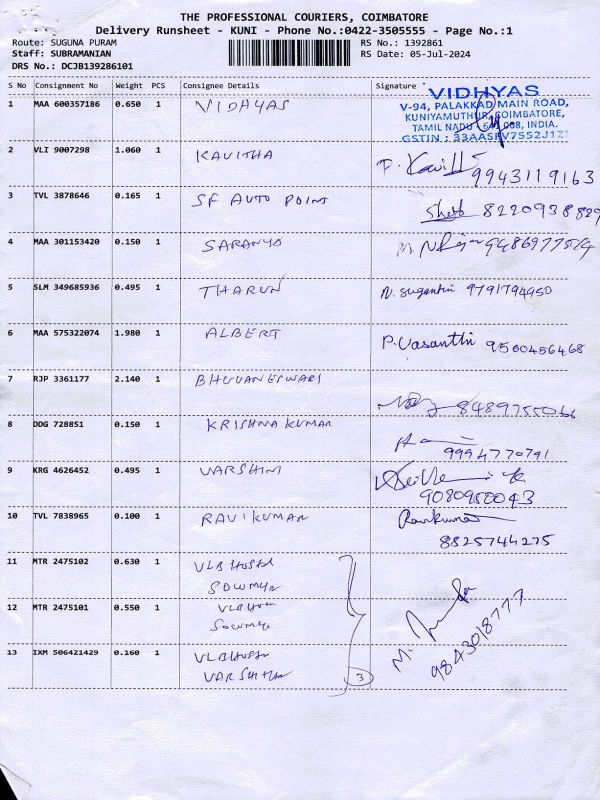 THE PROFESSIONAL COURIERS, COIMBATORE
Delivery Runsheet - KUNI - Phone No.:0422-3505555 - Page No.:1
Route: SUGUNA PURAM RS No.: 1392861
Staff: SUBRAMANIAN RS Date: 05-Jul-2024
DRS No.: DCJB139286101
S No Consignment No Weight PCS Consignee Details Signature
VIDHYAS
1 MAA 600357186 0.650 1 VIDHYAS V-94, PALAKKAD MAIN ROAD,
KUNIYAMUTHUR, COIMBATORE,
TAMIL NADU - 641 008, INDIA.
GSTIN : 33AASFV7552J1Z1
2 VLI 9007298 1.060 1 KAVITHA 9943119163
3 TVL 3878646 0.165 1 SF AUTO POINT 8220938829
4 MAA 301153420 0.150 1 SARANYA
5 SLM 349685936 0.495 1 THARUN N. Suganthi 9791794950
6 MAA 575322074 1.980 1 ALBERT P. Vasanthi 9500456468
7 RJP 3361177 2.140 1 BHUVANESWARI
8 DDG 728851 0.150 1 KRISHNA KUMAR
9994770791
9 KRG 4626452 0.495 1 VARSHINI
9080950043
10 TVL 7838965 0.100 1 RAVIKUMAR Ravikumar
8825744275
11 MTR 2475102 0.630 1 VLB HOSTEL
SOWMYA
12 MTR 2475101 0.550 1 VLB
SOWMYA
9843018777
13 IXM 506421429 0.160 1 VLB HOSTEL
3